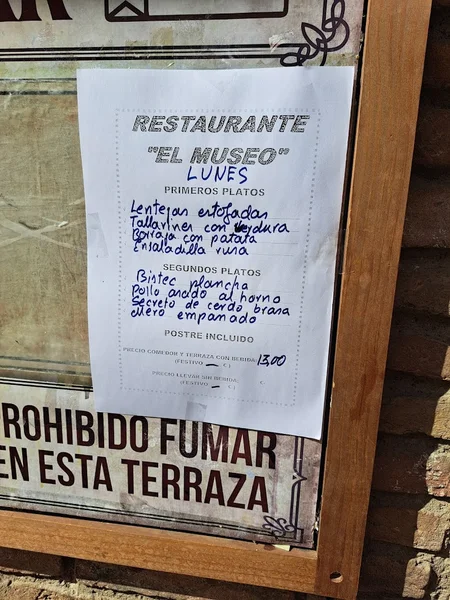 RESTAURANTE
"EL MUSEO"
LUNES
PRIMEROS PLATOS
Lentejas estofadas
Tallarines con verdura
Borraja con patata
Ensaladilla rusa
SEGUNDOS PLATOS
Bistec plancha
Pollo asado al horno
Secreto de cerdo brasa
Mero empanado
POSTRE INCLUIDO
PRECIO COMEDOR Y TERRAZA CON BEBIDA: 13,00
(FESTIVO — € )
PRECIO LLEVAR SIN BEBIDA: €.
(FESTIVO — € )
PROHIBIDO FUMAR
EN ESTA TERRAZA